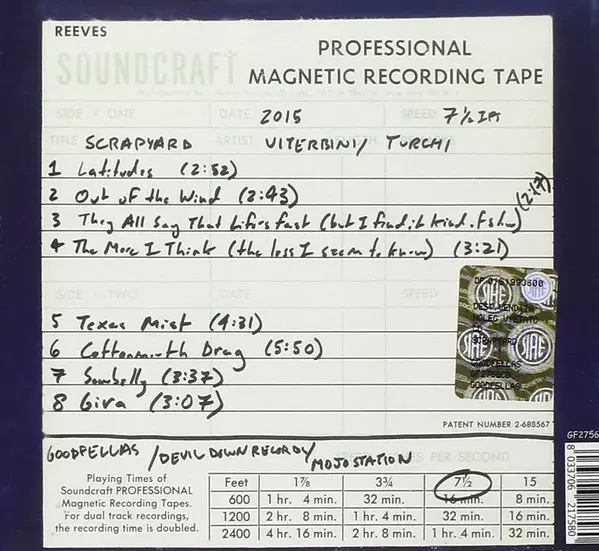 REEVES
SOUNDCRAFT
PROFESSIONAL
MAGNETIC RECORDING TAPE
SIDE - ONE DATE 2015 SPEED 7½ IPS
TITLE SCRAPYARD ARTIST VITERBINI/ TURCHI
1 Latitudes (2:52)
2 Out of the Wind (2:43)
3 They All Say That Life's Fast (but I find it kind of slow) (2:17)
4 The More I Think (the less I seem to know) (3:21)
SIDE - TWO DATE SPEED
5 Texas Mist (4:31)
6 Cottonmouth Drag (5:50)
7 Sowbelly (3:37)
8 Gira (3:07)
SIAE
SCRAPYARD
GOODFELLAS
PATENT NUMBER 2-688567
GF2756
8 033706 217580
GOODFELLAS /DEVIL DOWN RECORDS/
MOJO STATION
PER SECOND
Playing Times of
Soundcraft PROFESSIONAL
Magnetic Recording Tapes.
For dual track recordings,
the recording time is doubled.
Feet 1⅞ 3¾ 7½ 15
600 1 hr. 4 min. 32 min. 16 min. 8 min.
1200 2 hr. 8 min. 1 hr. 4 min. 32 min. 16 min.
2400 4 hr. 16 min. 2 hr. 8 min. 1 hr. 4 min. 32 min.